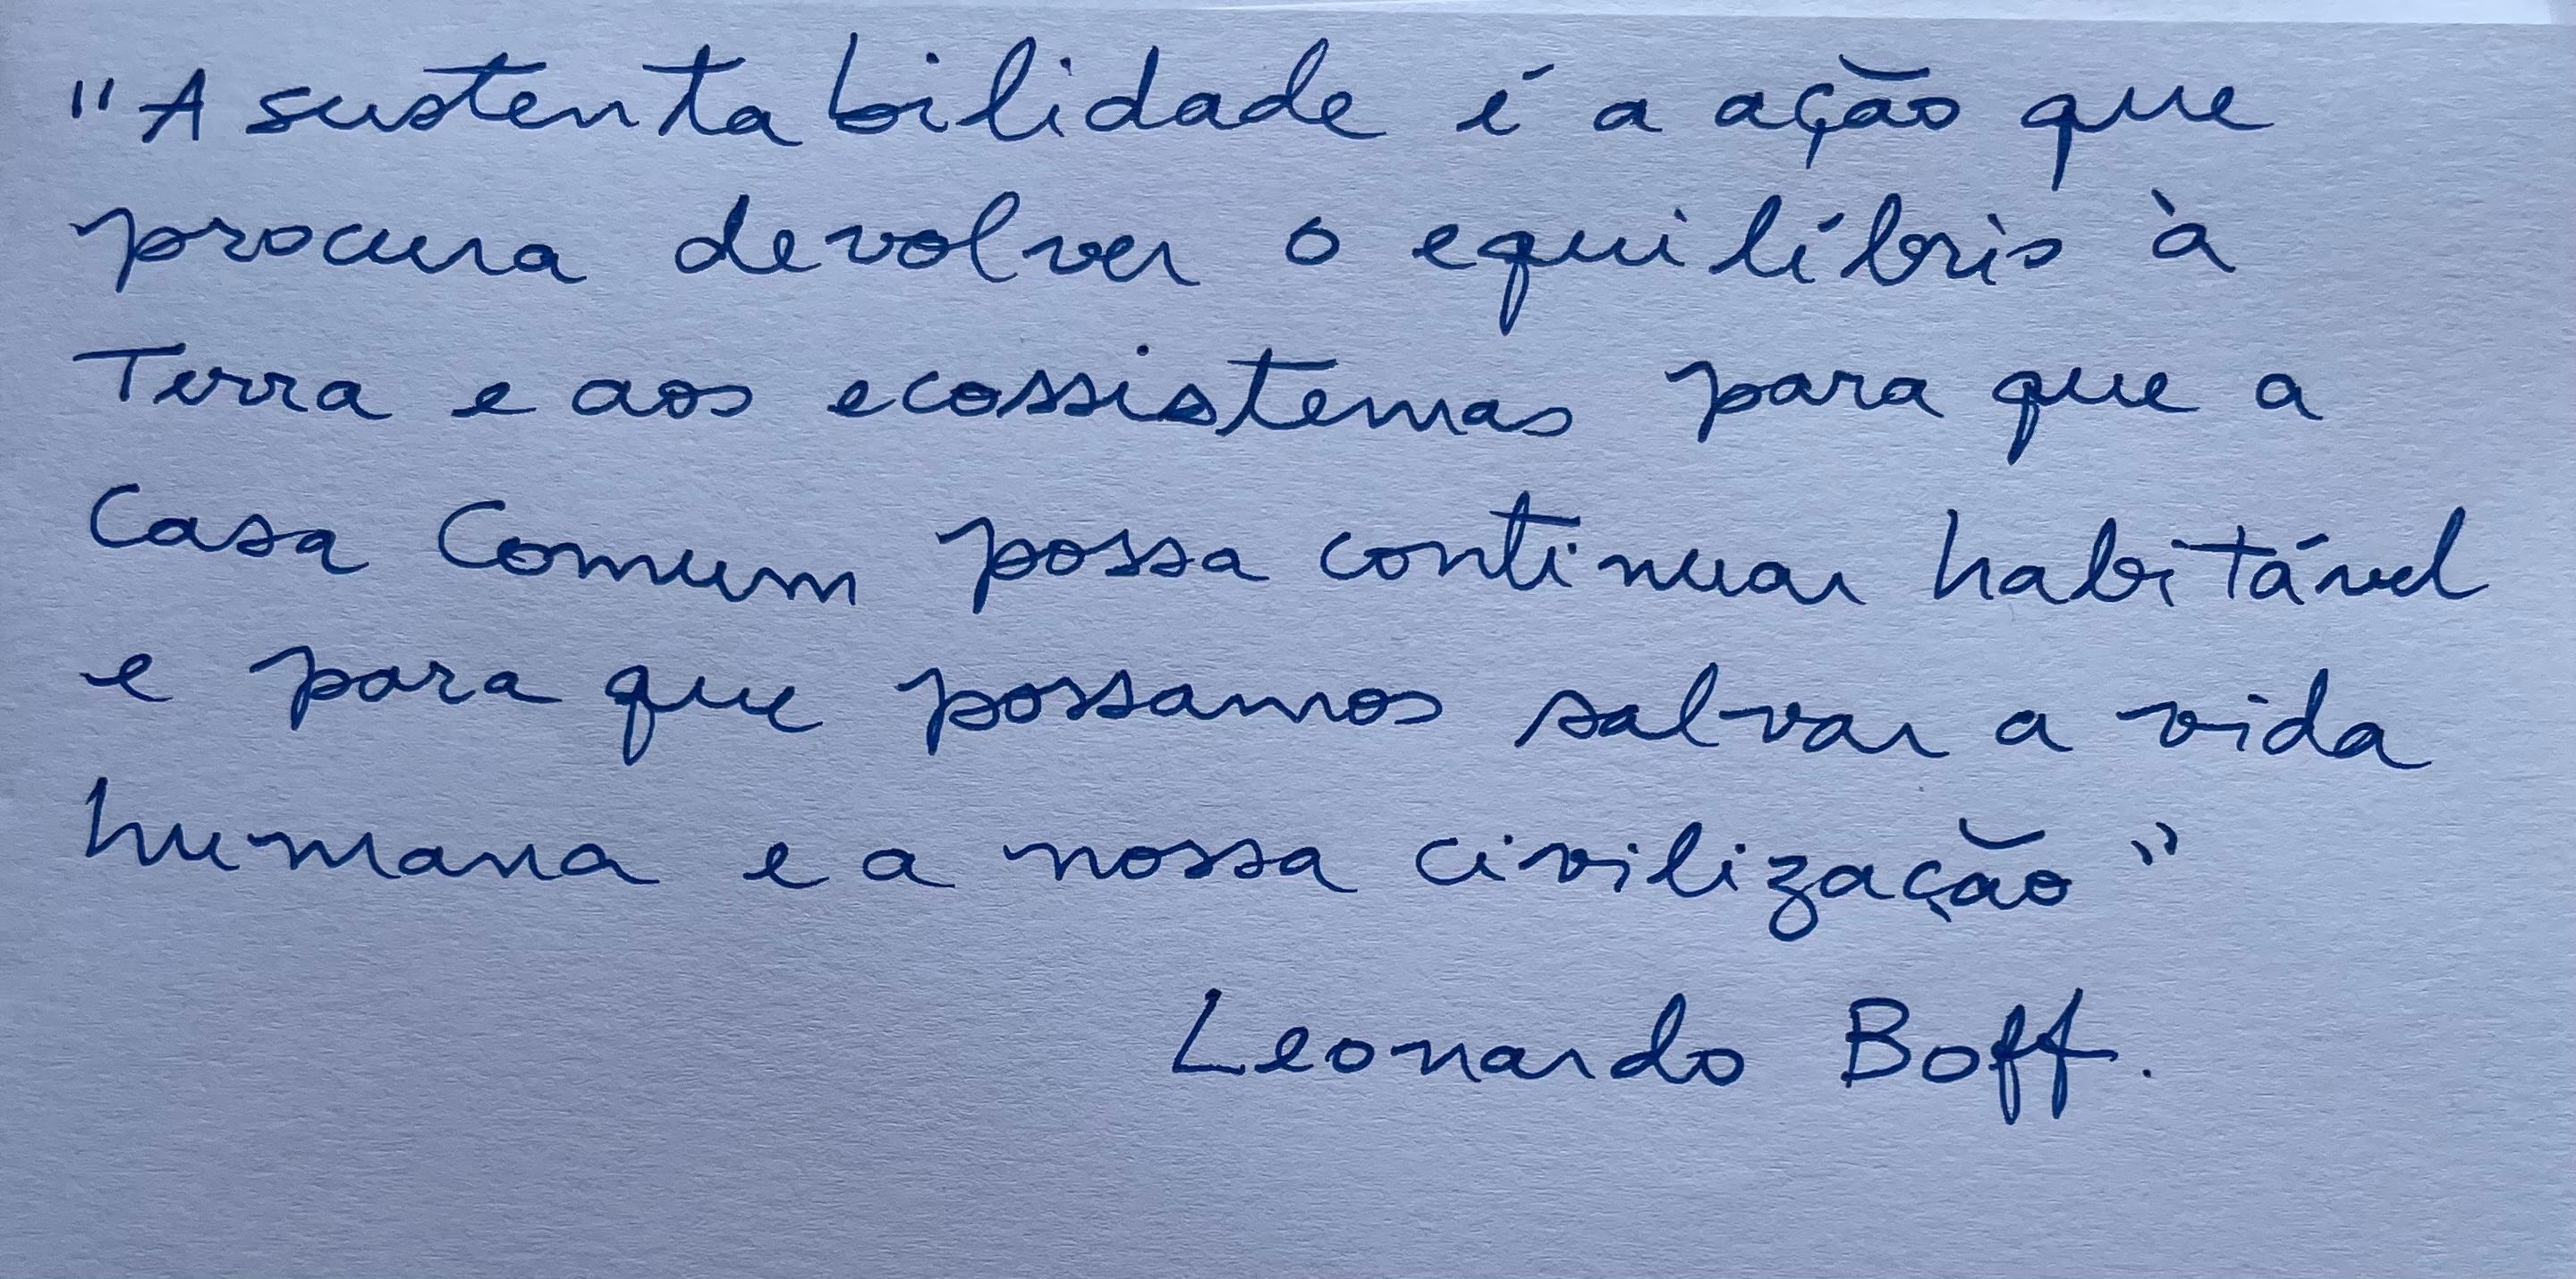 "A sustentabilidade é a ação que
procura devolver o equilíbrio à
Terra e aos ecossistemas para que a
Casa Comum possa continuar habitável
e para que possamos salvar a vida
humana e a nossa civilização"
Leonardo Boff.